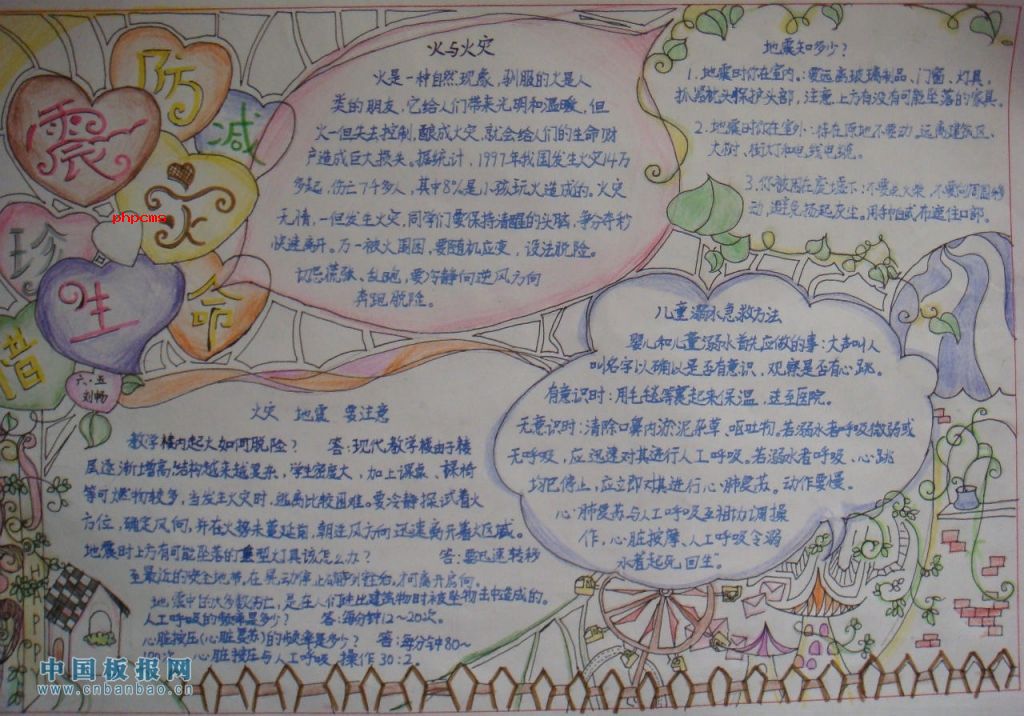 防
震
减
灾
phpcms
珍
生
命
惜
六·五
刘畅
火与火灾
火是一种自然现象,驯服的火是人
类的朋友,它给人们带来光明和温暖,但
火一但失去控制,酿成火灾,就会给人们的生命财
产造成巨大损失。据统计,1997年我国发生火灾14万
多起,伤亡7千多人,其中8%是小孩玩火造成的。火灾
无情,一但发生火灾,同学们要保持清醒的头脑,争分夺秒
快速离开。万一被火围困,要随机应变,设法脱险。
切忌慌张、乱跑,要冷静向逆风方向
奔跑脱险。
地震知多少?
1.地震时你在室内:要远离玻璃制品、门窗、灯具。
抓 枕头保护头部,注意上方有没有可能坠落的家具。
2.地震时你在室外:待在原地不要动,远离建筑区、
大树、街灯和电线电缆。
3.你被困在废墟下:不要点火柴,不要向周围移
动,避免扬起灰尘。用手帕或布遮住口部。
儿童溺水急救方法
婴儿和儿童溺水首先应做的事:大声叫人
叫名字以确认是否有意识、观察是否有心跳。
有意识时:用毛毯等裹起来保温,送至医院。
无意识时:清除口鼻内淤泥杂草、呕吐物。若溺水者呼吸微弱或
无呼吸,应迅速对其进行人工呼吸。若溺水者呼吸、心跳
均已停止,应立即对其进行心肺复苏。动作要慢。
心肺复苏与人工呼吸互相协调操
作。心脏按摩、人工呼吸令溺
水者起死回生"
火灾 地震 要注意
教学楼内起火如何脱险? 答:现代教学楼由于楼
层逐渐增高,结构越来越复杂,学生密度大,加上课桌、课椅
等可燃物较多,当发生火灾时,逃离比较困难。要冷静探试着火
方位,确定风向,并在火势未蔓延前,朝逆风方向迅速离开着火区域。
地震时上方有可能坠落的重型灯具该怎么办? 答:要迅速转移
至最近的安全地带,在晃动停止
地震中的大多数伤亡,是在人们进出建筑物时被坠物击中造成的。
人工呼吸的频率是多少? 答:每分钟12~20次。
心脏按压(心脏复苏)的频率是多少? 答:每分钟80~
100次。心脏按压与人工呼吸 操作30:2。
中国板报网
www.cnbanbao.cn